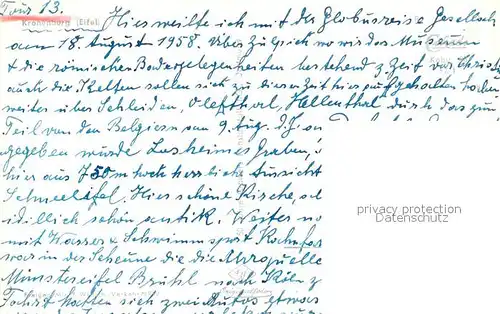 Tour 13.
Kronenburg (Eifel) Hier weilte ich mit der Globusreise Gesellsch
am 18. August 1958. Über Zülpich wo wir das Museum
& die römischen Badegelegenheiten bestehend z. Zeit vor Christi
auch die Kelten sollen sich zu dieser Zeit hier aufgehalten haben
weiter über Schleiden, Oleftal, Hellenthal durch das zum
Teil von den Belgiern am 9. Aug. d. J. an
gegeben wurde Losheimer Graben,
hier aus 750 m hoch herrliche Aussicht
Schneeifel. Hier schöne Kirche,
idyllisch schön antik. Weiter
mit Wasser & Schwimmsport
war in der Scheune die die Ahrquelle
Münstereifel Brühl nach Köln z
Fahrt hatten sich zwei Autos etwas
privacy protection
Datenschutz